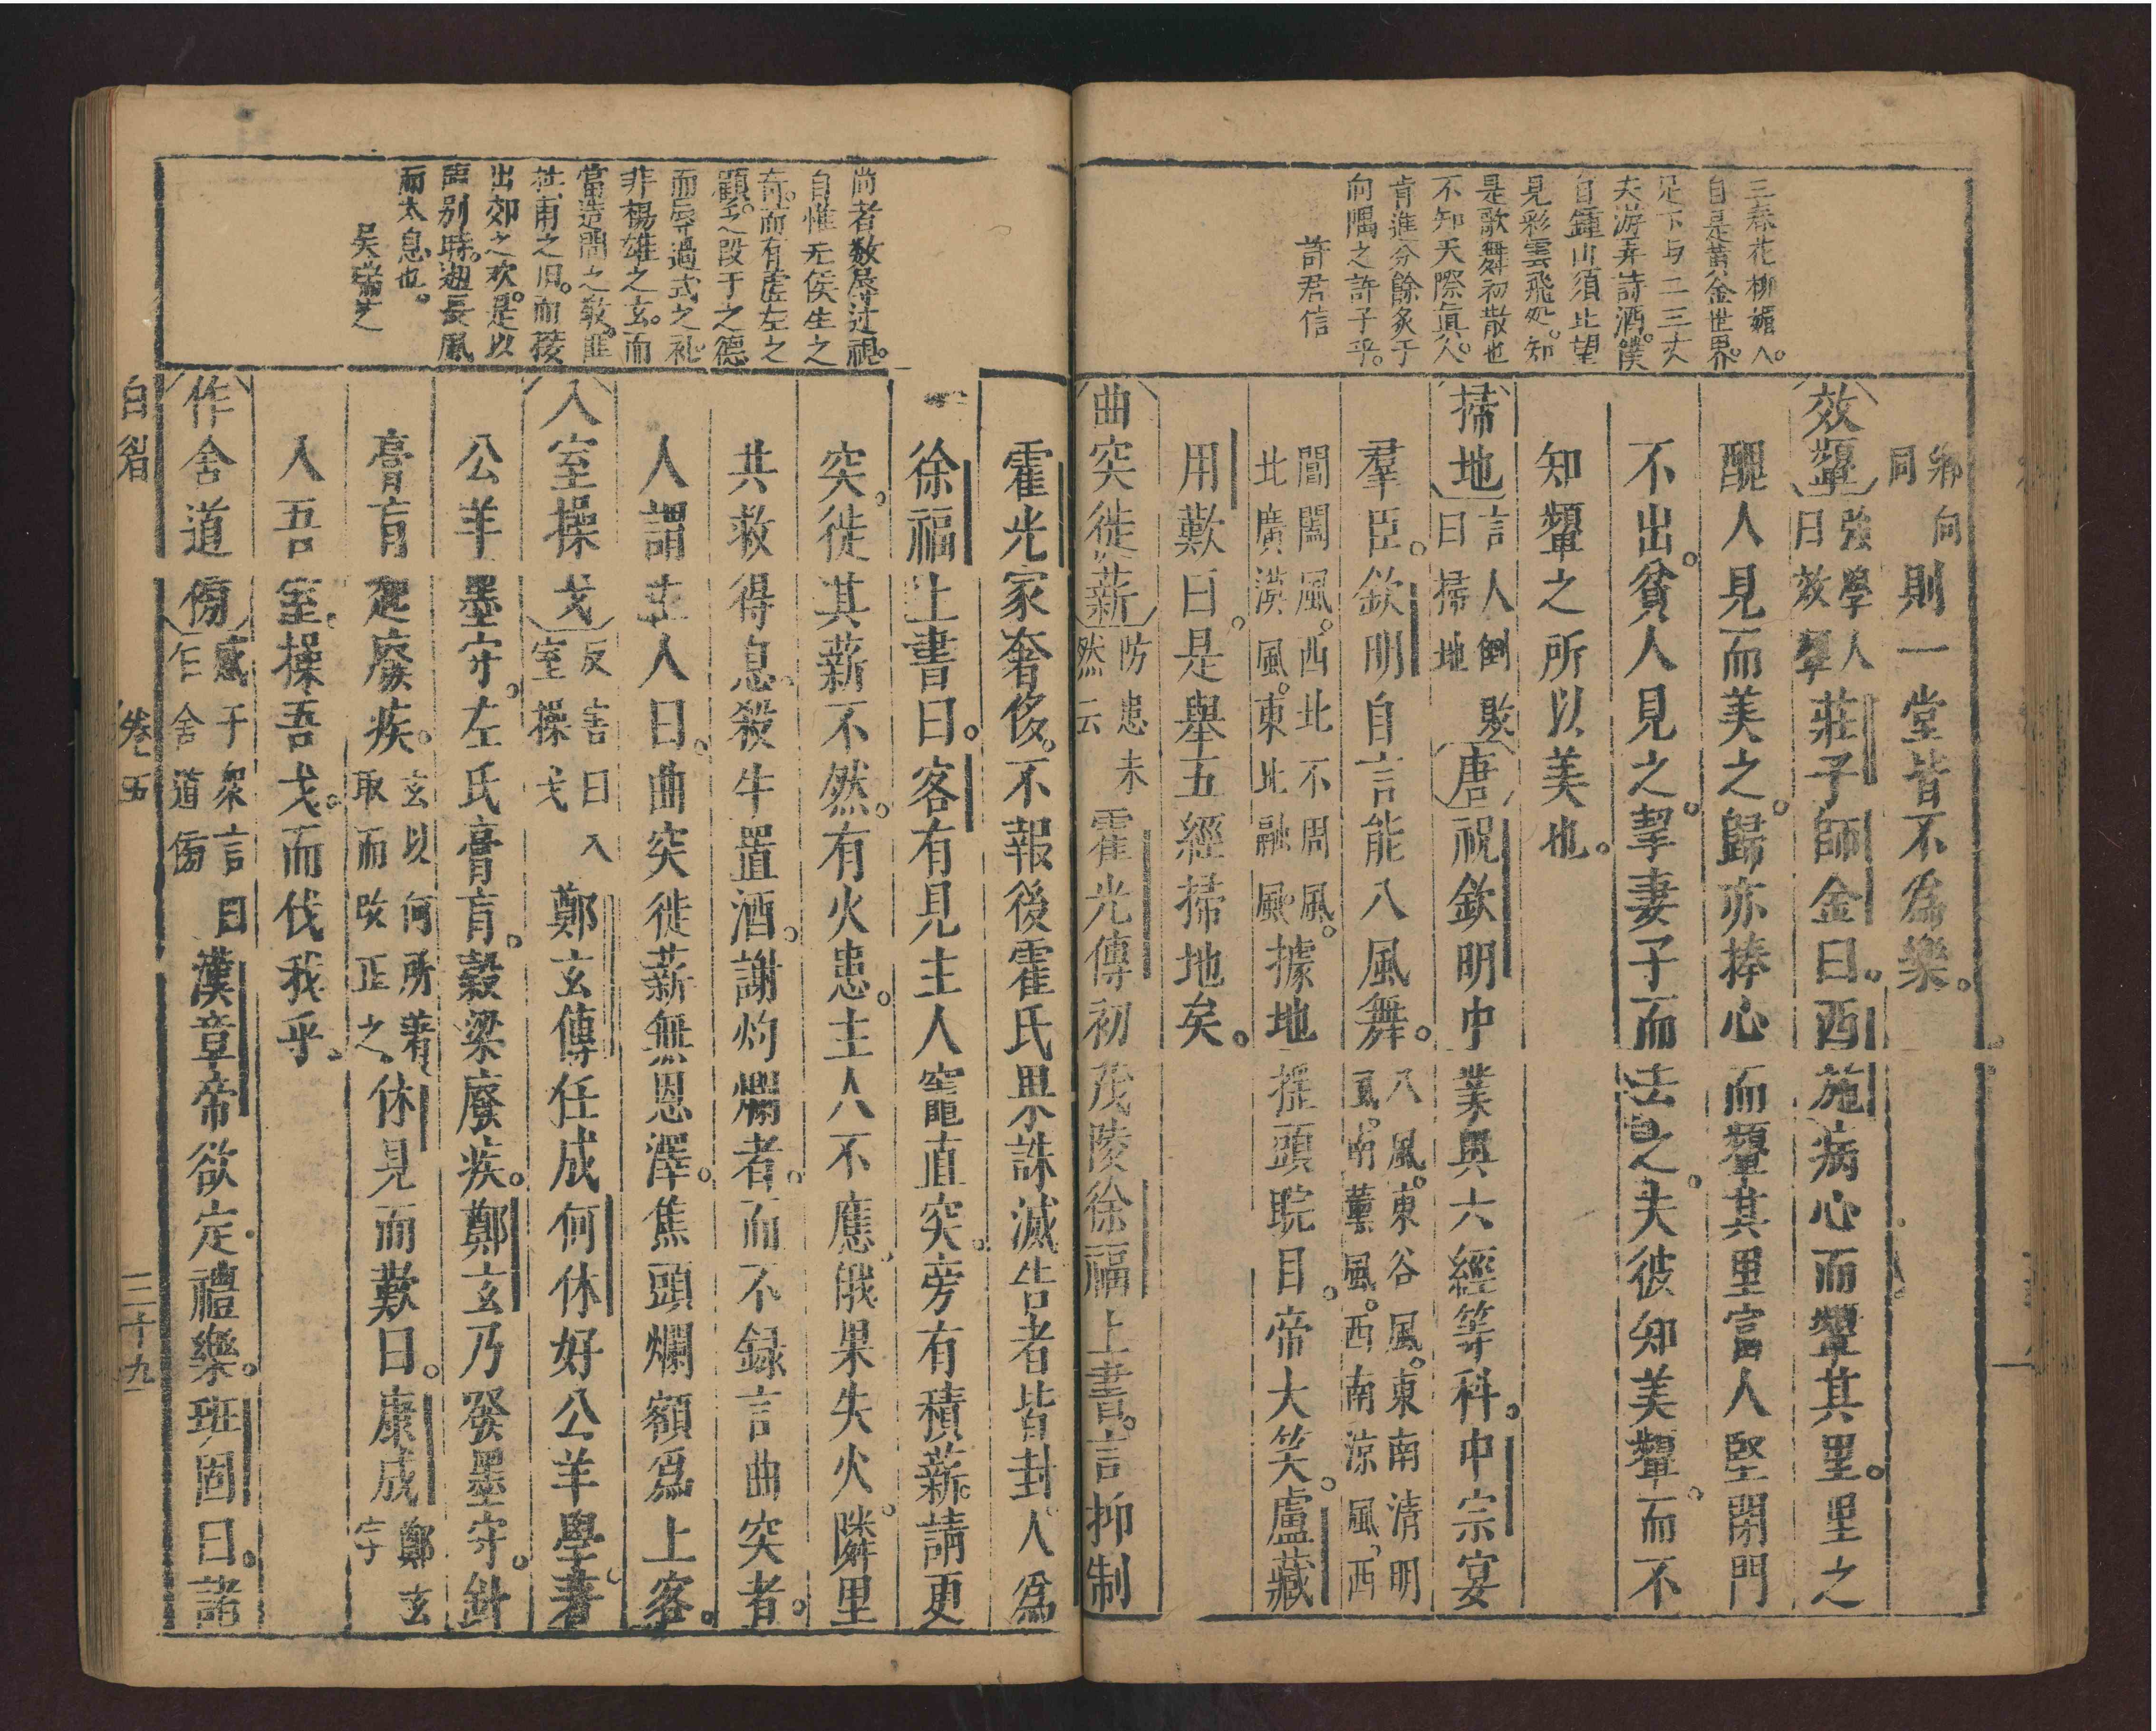 三春花柳媚人。
自是黃金世界。
足下与二三丈
夫游弄詩酒。僕
自鍾山須北望
見彩雲飛処。知
是歌舞初散也
不知天際真人。
肯進分餘炙于
向隅之許子乎。
許君信
鄉向同則一堂皆不為樂。
效顰強學人曰效顰莊子師金曰。西施病心而顰其里。里之
醜人見而美之。歸亦捧心而顰其里富人堅閉門
不出。貧人見之。挈妻子而去之。夫彼知美顰。而不
知顰之所以美也。
掃地言人倒敗曰掃地唐祝欽明中業奧六經等科。中宗宴
羣臣。欽明自言能八風舞。八風。東谷風。東南清明風。南薰風。西南涼風。西
閶闔風。西北不周風。北廣漠風。東北融風。據地搖頭睆目。帝大笑。盧藏
用歎曰。是舉五經掃地矣。
曲突徙薪防患未然云霍光傳初茂陵徐福上書。言抑制
霍光家奢侈。不報後霍氏果誅滅告者皆封人為
徐福上書曰。客有見主人竈直突。旁有積薪。請更
突。徙其薪不然。有火患。主人不應。俄果失火。隣里
共救得息。殺牛置酒。謝灼爛者。而不録言曲突者。
人謂主人曰。曲突徙薪無恩澤。焦頭爛額為上客。
入室操戈反害曰入室操戈鄭玄傳任成何休好公羊學。著
公羊墨守。左氏膏肓。穀梁廢疾。鄭玄乃發墨守。針
膏肓起廢疾。玄以何所著取而改正之休見而歎曰。康成鄭玄字
人吾室。操吾戈。而伐我乎。
作舍道傍感于衆言曰作舍道傍漢章帝欲定禮樂。班固曰。諸
尚者数辰过視。
自惟无侯生之
奇。而有虛左之
顧。乏段于之德
而辱過式之礼。
非楊雄之玄。而
當造問之敎。匪
杜甫之旧。而稜
出郊之欢。是以
臨別時。廻長風
而太息也。
吴瑞芝
白眉
卷五
三十九